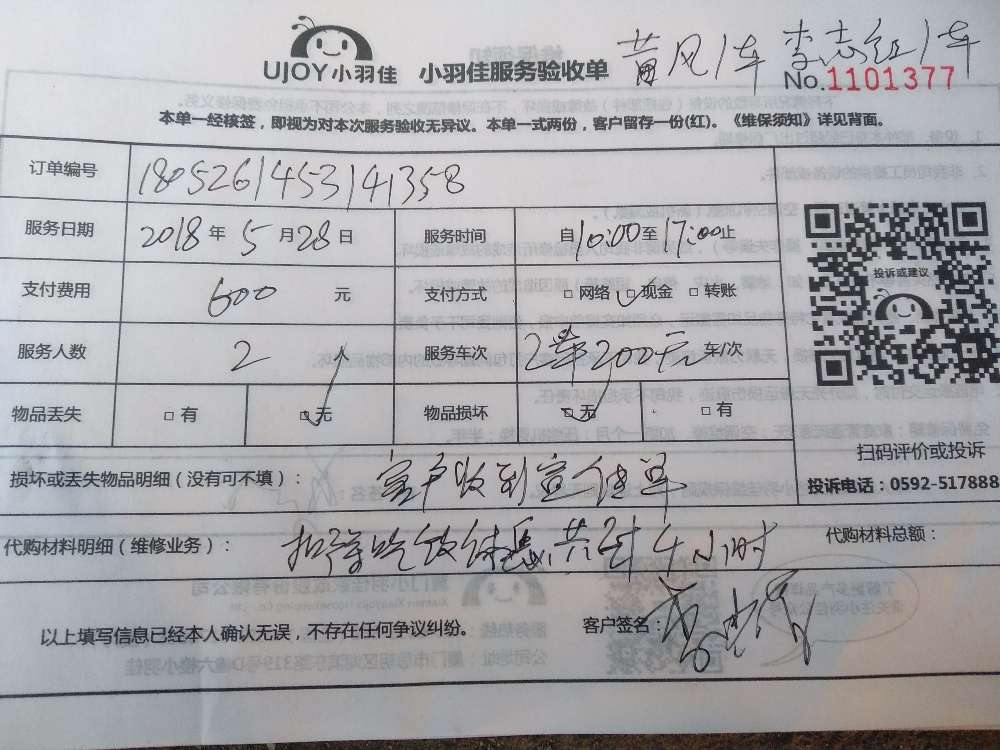 UJOY小羽佳 小羽佳服务验收单 黄风1车 李志红1车
No.1101377
本单一经核签，即视为对本次服务验收无异议。本单一式两份，客户留存一份(红)。《维保须知》详见背面。
订单编号 1805261453141358
服务日期 2018年5月28日 服务时间 自10:00至17:00止
支付费用 600 元 支付方式 □网络 □现金 □转账
投诉或建议
服务人数 2 人 服务车次 2车200元 车/次
物品丢失 □有 □无 物品损坏 □无 □有
扫码评价或投诉
损坏或丢失物品明细（没有可不填）： 客户收到宣传单
投诉电话：0592-517888
代购材料明细（维修业务）： 扣除吃饭休息,共计4小时 代购材料总额：
以上填写信息已经本人确认无误，不存在任何争议纠纷。 客户签名：